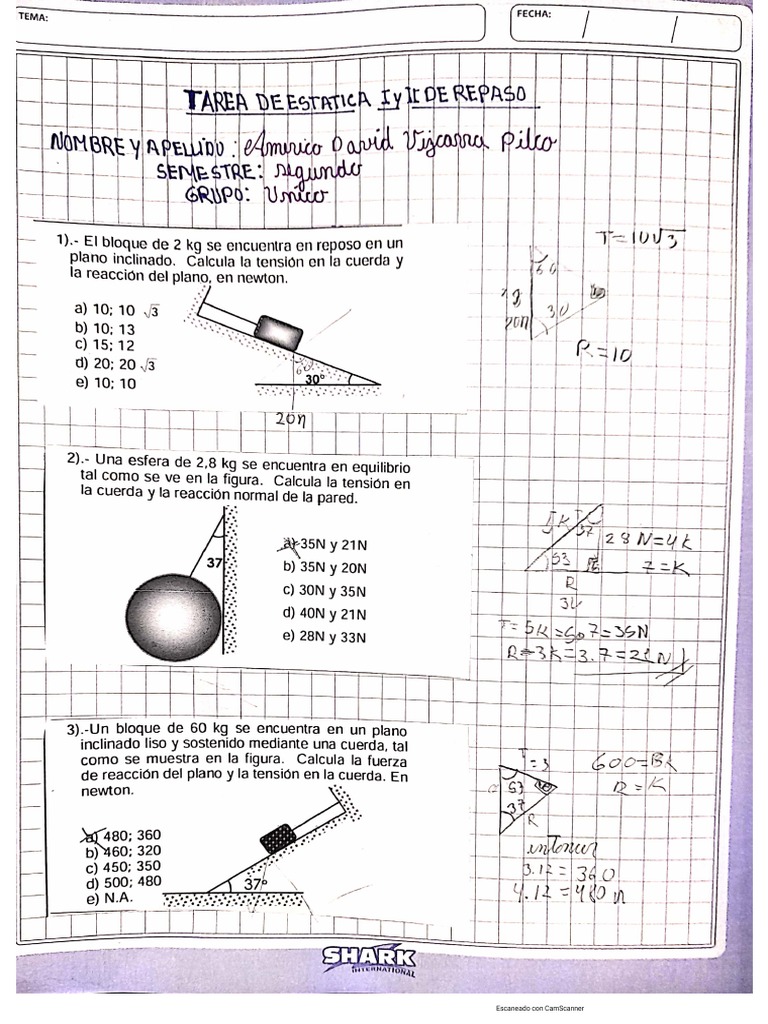 TEMA:
FECHA:
TAREA DE ESTATICA I y II DE REPASO
NOMBRE Y APELLIDO: Americo David Vizcarra Pilco
SEMESTRE: segundo
GRUPO: Unico
1).- El bloque de 2 kg se encuentra en reposo en un
plano inclinado. Calcula la tensión en la cuerda y
la reacción del plano, en newton.
a) 10; 10 √3
b) 10; 13
c) 15; 12
d) 20; 20 √3
e) 10; 10
60
30°
20n
T=10√3
60
30
20n
R=10
2).- Una esfera de 2,8 kg se encuentra en equilibrio
tal como se ve en la figura. Calcula la tensión en
la cuerda y la reacción normal de la pared.
37
a) 35N y 21N
b) 35N y 20N
c) 30N y 35N
d) 40N y 21N
e) 28N y 33N
5K T
37
28N=4K
53
7=K
R
T=5K=5.7=35N
R=3K=3.7=21N
3).-Un bloque de 60 kg se encuentra en un plano
inclinado liso y sostenido mediante una cuerda, tal
como se muestra en la figura. Calcula la fuerza
de reacción del plano y la tensión en la cuerda. En
newton.
a) 480; 360
b) 460; 320
c) 450; 350
d) 500; 480
e) N.A.
37°
T=3
53
37
R
R=K
3.12=360
4.12=480n
SHARK
INTERNATIONAL
Escaneado con CamScanner